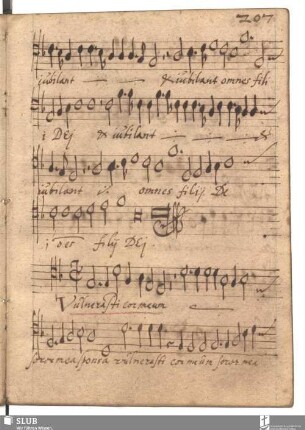 207
iubilant & iubilant omnes fili
i Dej & iubilant &
iubilant omnes filij De
i filij Dej
Vulnerasti cor meum
soror mea sponsa vulnerasti cor meum soror mea
SLUB
Wir führen Wissen.